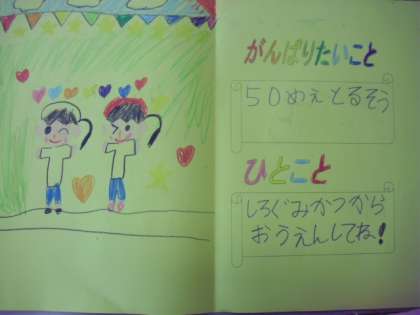 がんばりたいこと
５０めえとるそう
ひとこと
しろぐみかつから
おうえんしてね！